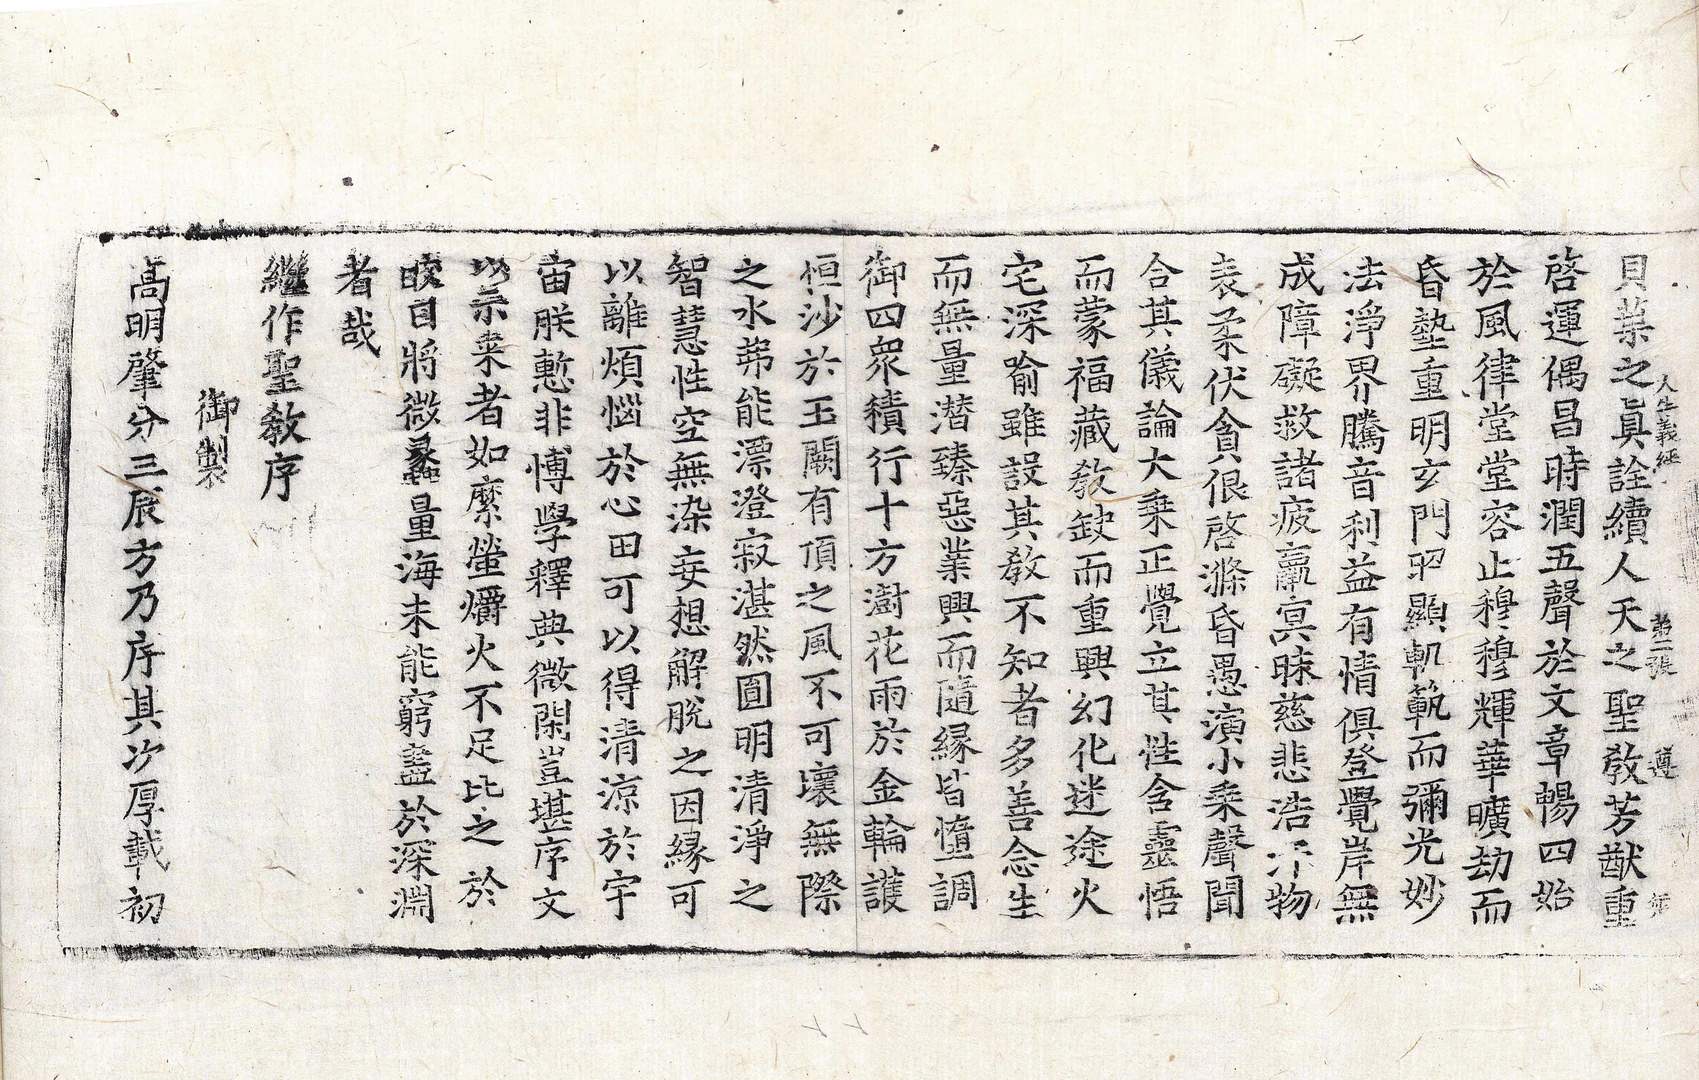 人生義經 第二張 遵
貝葉之眞詮續人天之聖教芳猷重
啓運偶昌時潤五聲於文章暢四始
於風律堂堂容止穆穆輝華曠劫而
昏蟄重明玄門昭顯軌範而彌光妙
法淨界騰音利益有情俱登覺岸無
成障礙救諸疲羸冥昧慈悲浩汗物
表柔伏貪佷啓滌昏愚演小乘聲聞
合其儀論大乘正覺立其性含靈悟
而蒙福藏教缺而重興幻化迷途火
宅深喻雖設其教不知者多善念生
而無量潛臻惡業興而隨緣皆墮調
御四衆積行十方澍花雨於金輪護
恒沙於玉闕有頂之風不可壞無際
之水弗能漂澄寂湛然圓明清淨之
智慧性空無染妄想解脫之因緣可
以離煩惱於心田可以得清涼於宇
宙朕慙非博學釋典微閑豈堪序文
以示来者如縻螢爝火不足比之於
晈日將微蠡量海未能窮盡於深淵
者哉
繼作聖教序
御製
高明肇分三辰方乃序其次厚載初